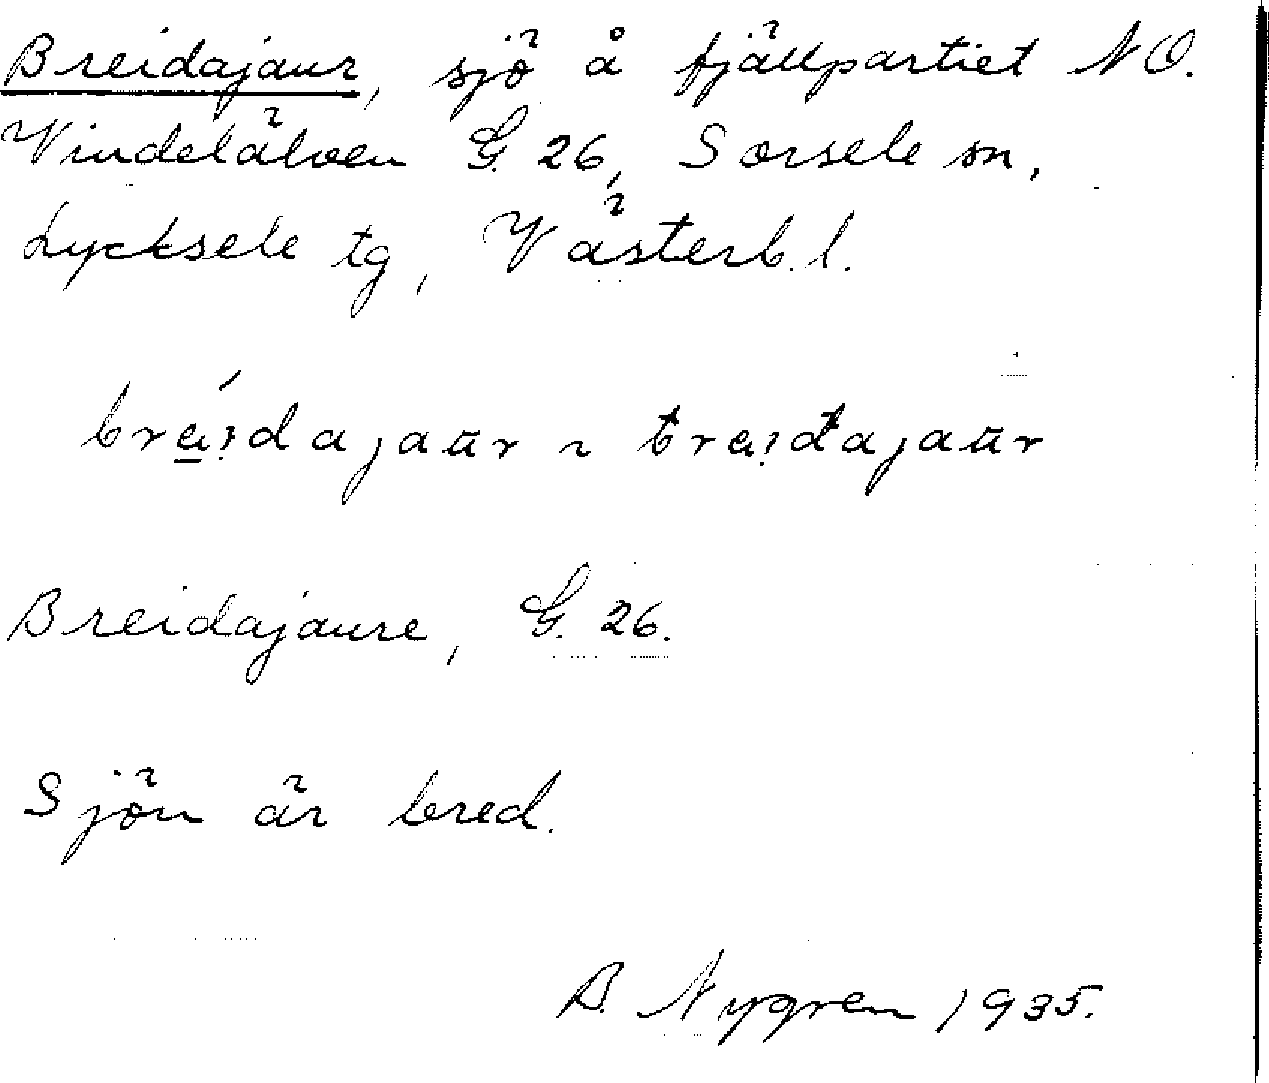 Breidajaur, sjö å fjällpartiet NO.
Vindelälven G. 26, Sorsele sn,
Lycksele tg, Västerb. l.
Breidajaure, G. 26.
Sjön är bred.
B. Nygren 1935.